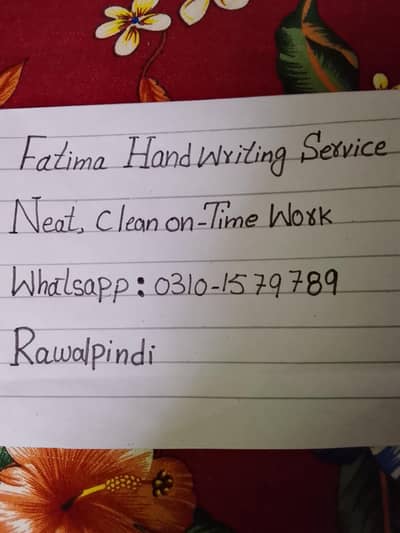 Fatima Handwriting Service
Neat, Clean on-Time Work
Whatsapp: 0310-1579789
Rawalpindi